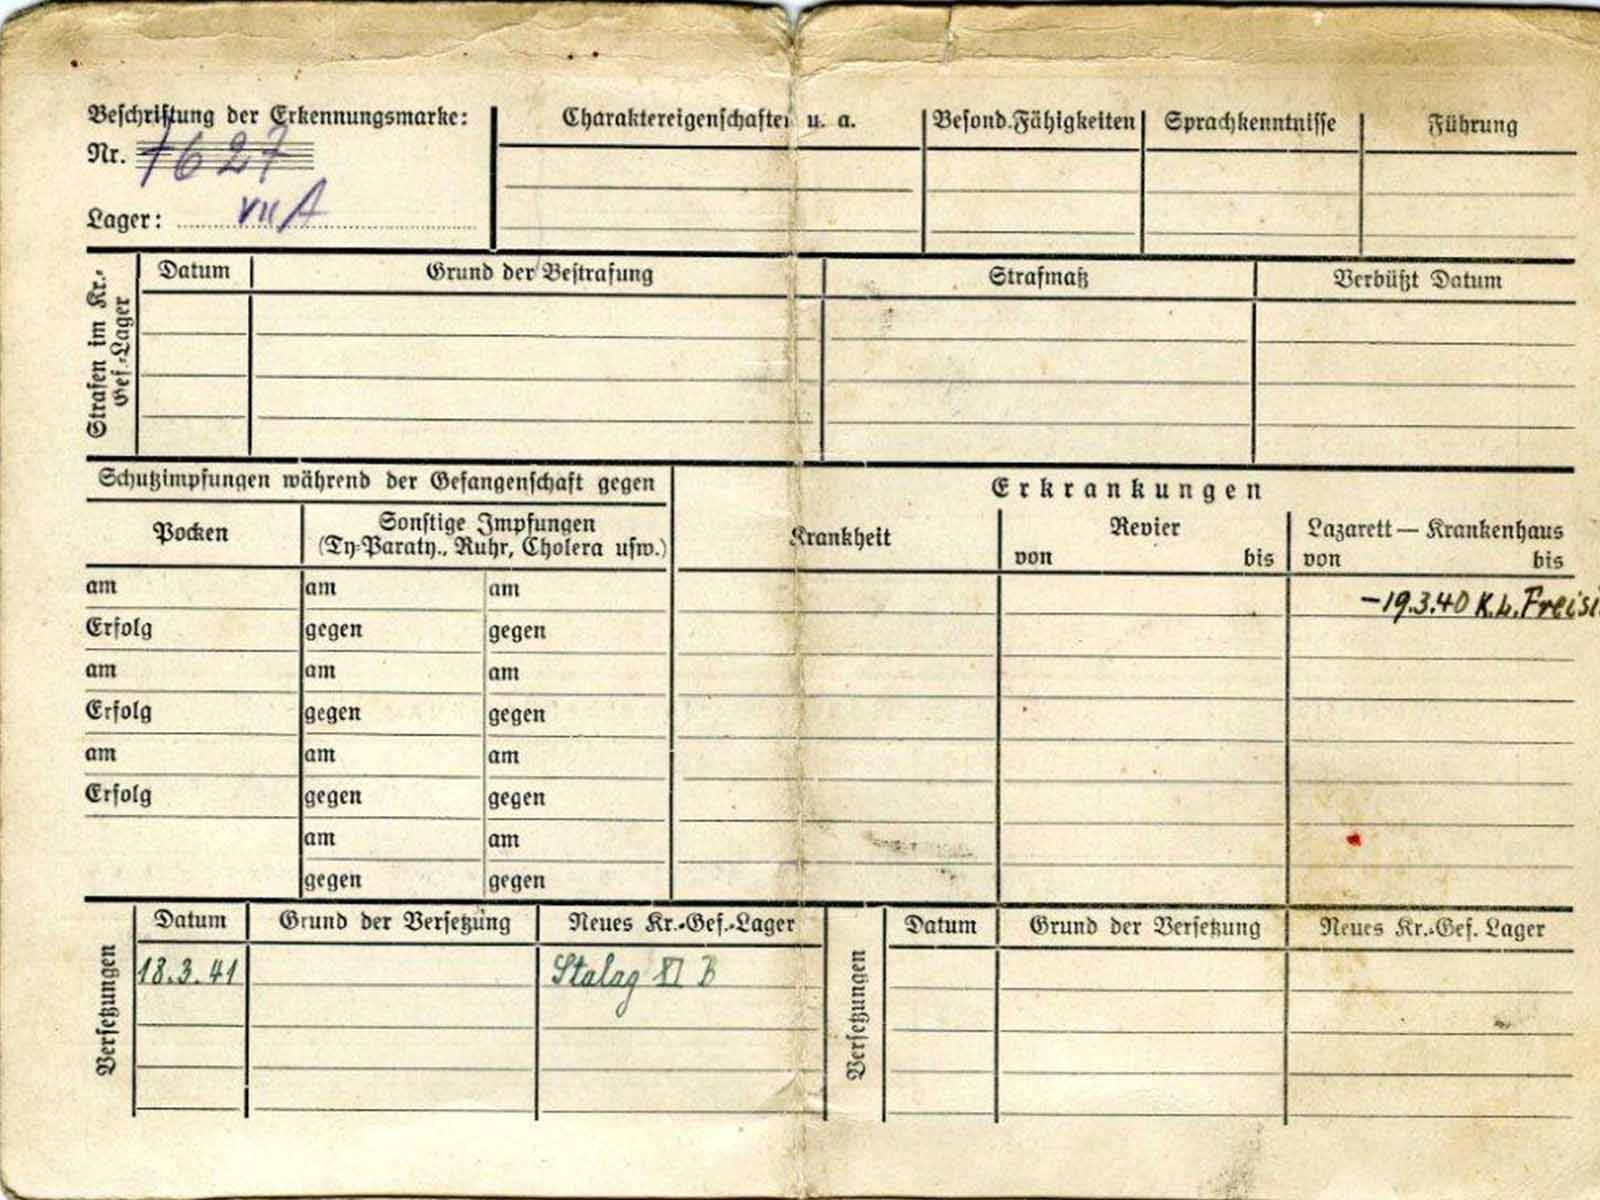 Beschriftung der Erkennungsmarke:
Nr. 7627
Lager: VII A
Charaktereigenschaften u. a.
Besond. Fähigkeiten
Sprachkenntnisse
Führung
Strafen im Kr.-
Gef.-Lager
Datum
Grund der Bestrafung
Strafmaß
Verbüßt Datum
Schutzimpfungen während der Gefangenschaft gegen
Pocken
Sonstige Impfungen
(Ty-Paraty., Ruhr, Cholera usw.)
am am am
Erfolg gegen gegen
am am am
Erfolg gegen gegen
am am am
Erfolg gegen gegen
am am
gegen gegen
Erkrankungen
Krankheit
Revier
von bis
Lazarett — Krankenhaus
von bis
-19.3.40 K.L. Freisi
Versetzungen
Datum Grund der Versetzung Neues Kr.-Gef.-Lager
18.3.41 Stalag XI B
Versetzungen
Datum Grund der Versetzung Neues Kr.-Gef. Lager